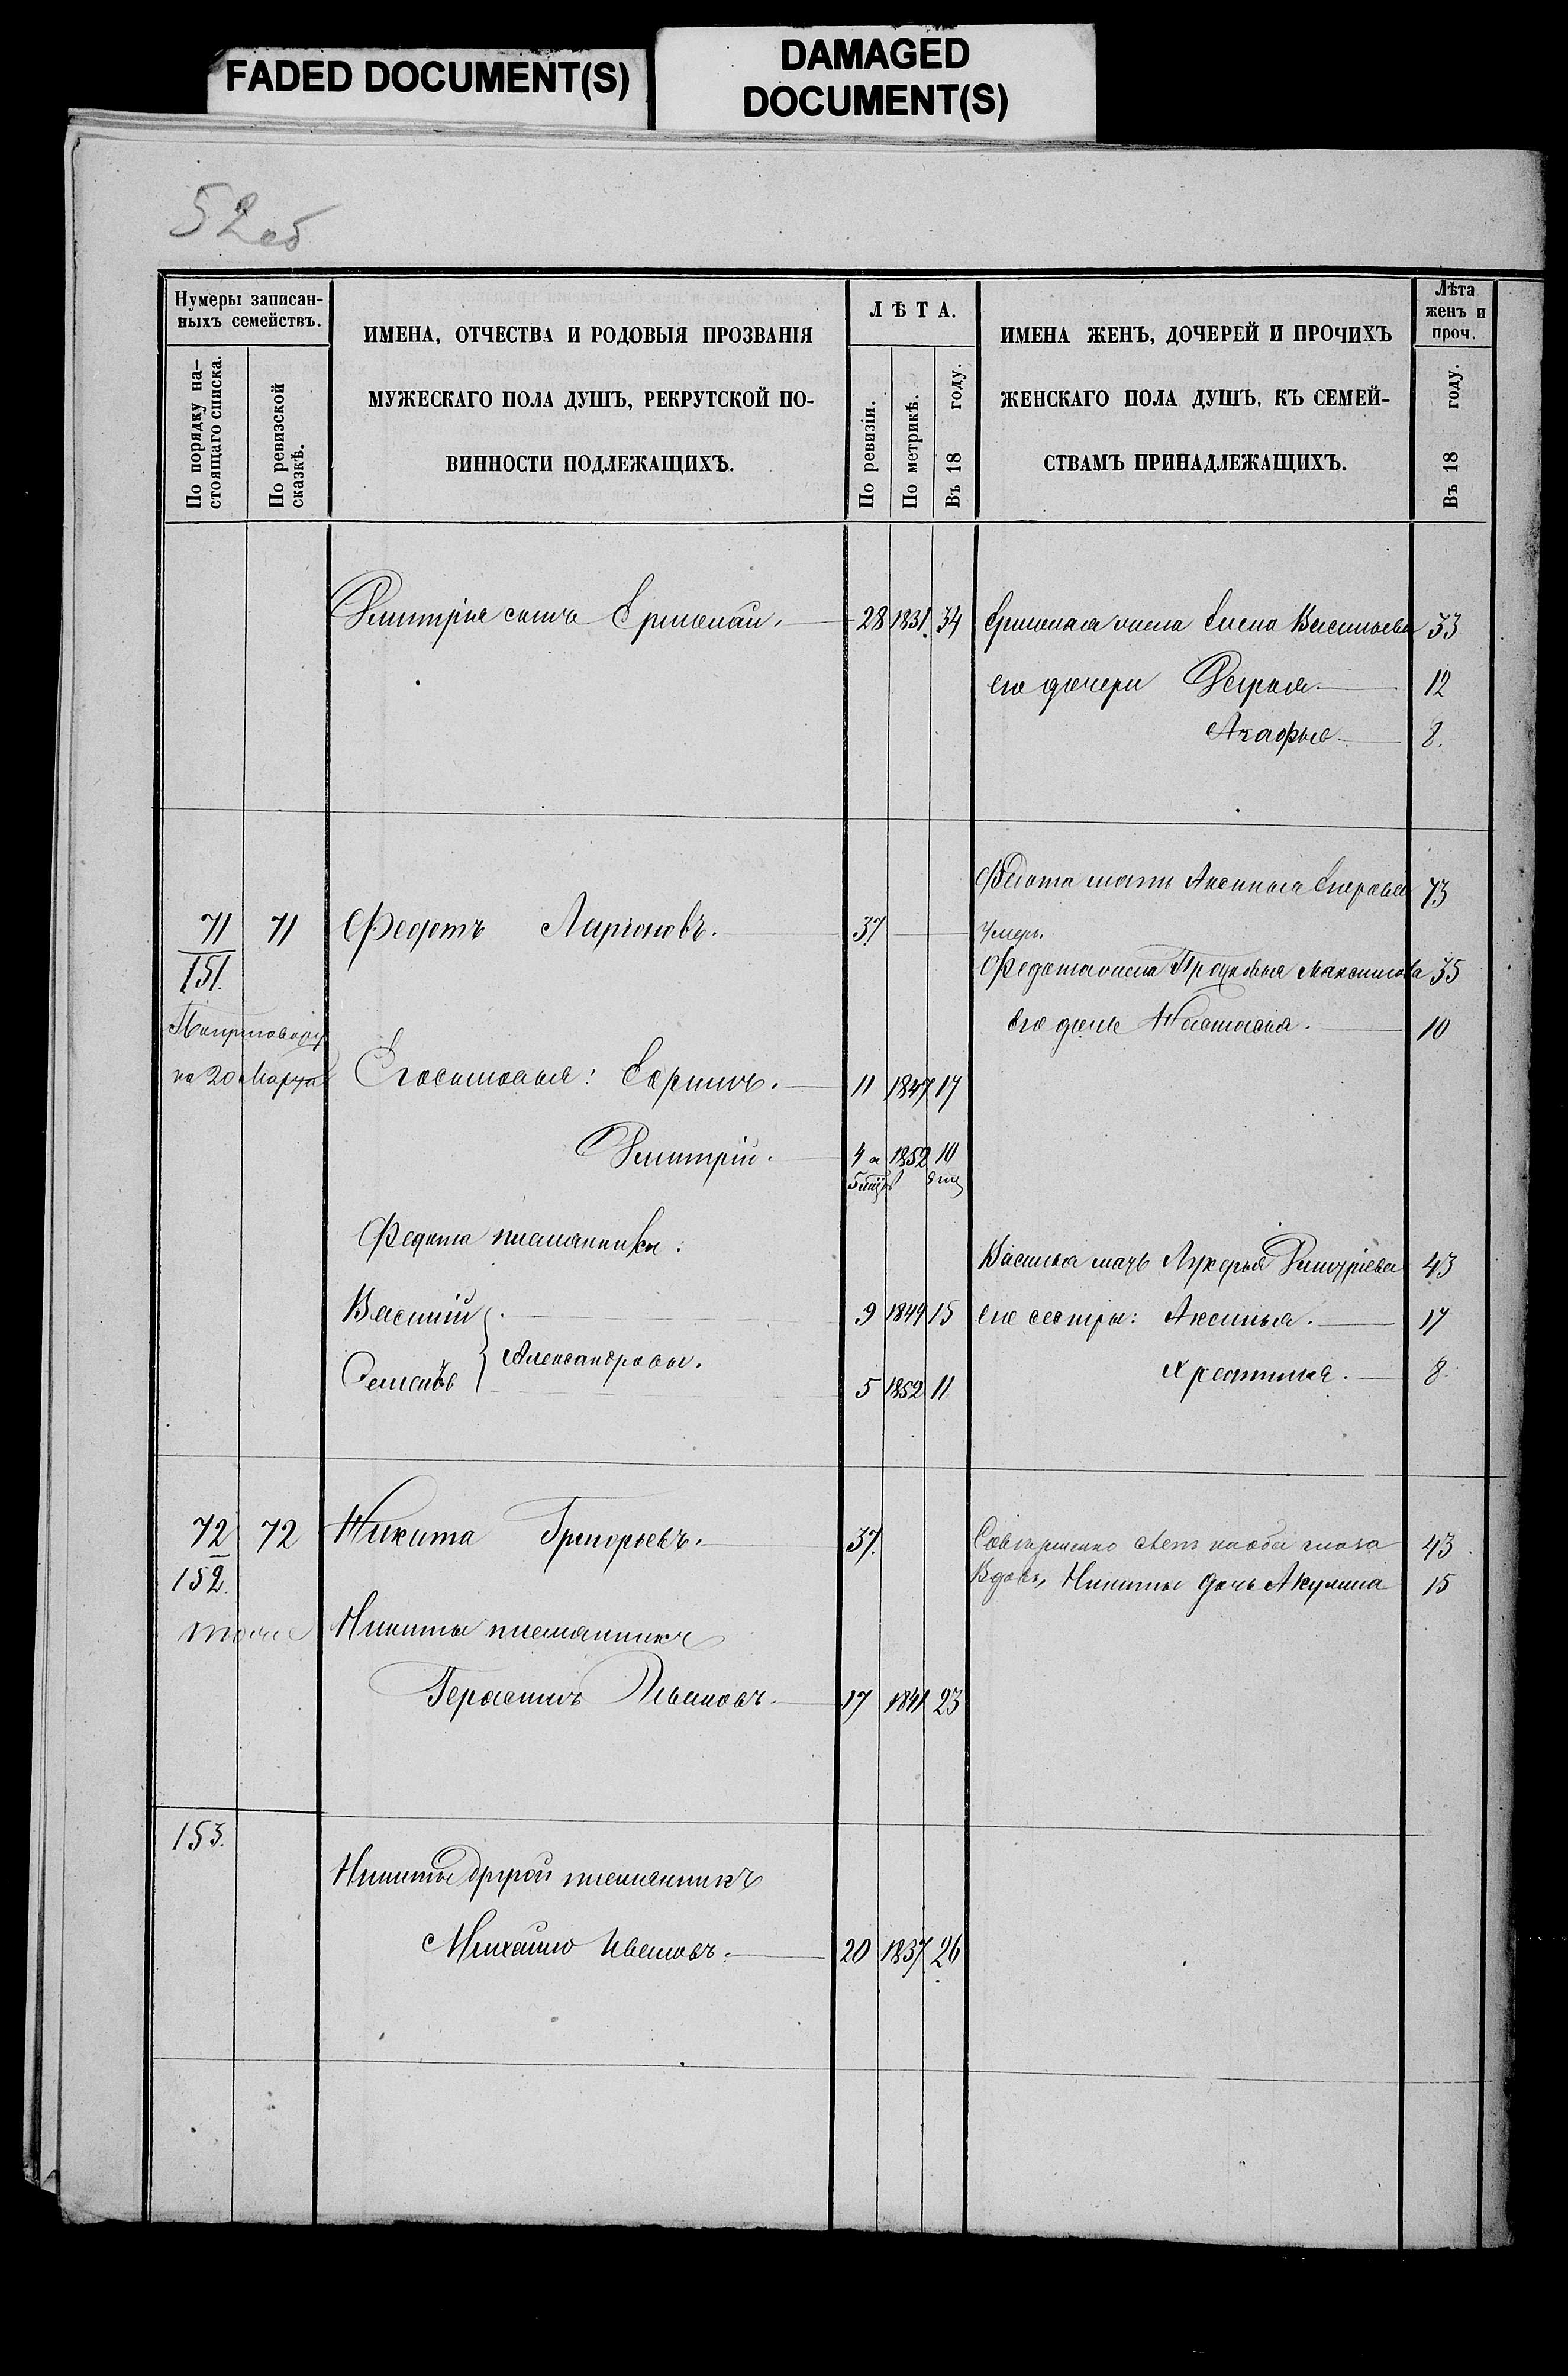 FADED DOCUMENT(S)
DAMAGED
DOCUMENT(S)
52об
Нумеры записан-
ныхъ семействъ.
По порядку на-
стоящаго списка.
По ревизской
сказкѣ.
ИМЕНА, ОТЧЕСТВА И РОДОВЫЯ ПРОЗВАНІЯ
МУЖЕСКАГО ПОЛА ДУШЪ, РЕКРУТСКОЙ ПО-
ВИННОСТИ ПОДЛЕЖАЩИХЪ.
ЛѢТА.
По ревизіи.
По метрикѣ.
Въ 18 году.
ИМЕНА ЖЕНЪ, ДОЧЕРЕЙ И ПРОЧИХЪ
ЖЕНСКАГО ПОЛА ДУШЪ, КЪ СЕМЕЙ-
СТВАМЪ ПРИНАДЛЕЖАЩИХЪ.
Лѣта
женъ и
проч.
Въ 18 году.
Дмитрія сынъ Ермолай. 28 1831. 34 Ермолая жена Елена Васильева 33
его дочери 12
Агафья 8.
Федота мать Аксинья 73
71 71 Федотъ Ларіоновъ. 37 умеръ.
151. Федота жена Прасковья Максимова 35
его дочь Настасья. 10
По приговору
на 20 Марта Его сыновья: Ефимъ. 11 1847 17
Дмитрій. 4 и 1852 10
5 мцъ
Федота племянники:
Василья мать Лукерья Дмитріева 43
Василій 9 1849 15 его сестры: Аксинья. 17
Александровы.
Семенъ 5 1852 11 Хрестинья. 8.
72 72 Никита Григорьевъ. 37. Совершенно слепъ на оба глаза 43
152. Вдовъ, Никиты дочь Акулина 15
тоже Никиты племянникъ
Герасимъ Ивановъ 17 1841 23
153.
Никиты другой племянникъ
Михайло Ивановъ. 20 1837 26